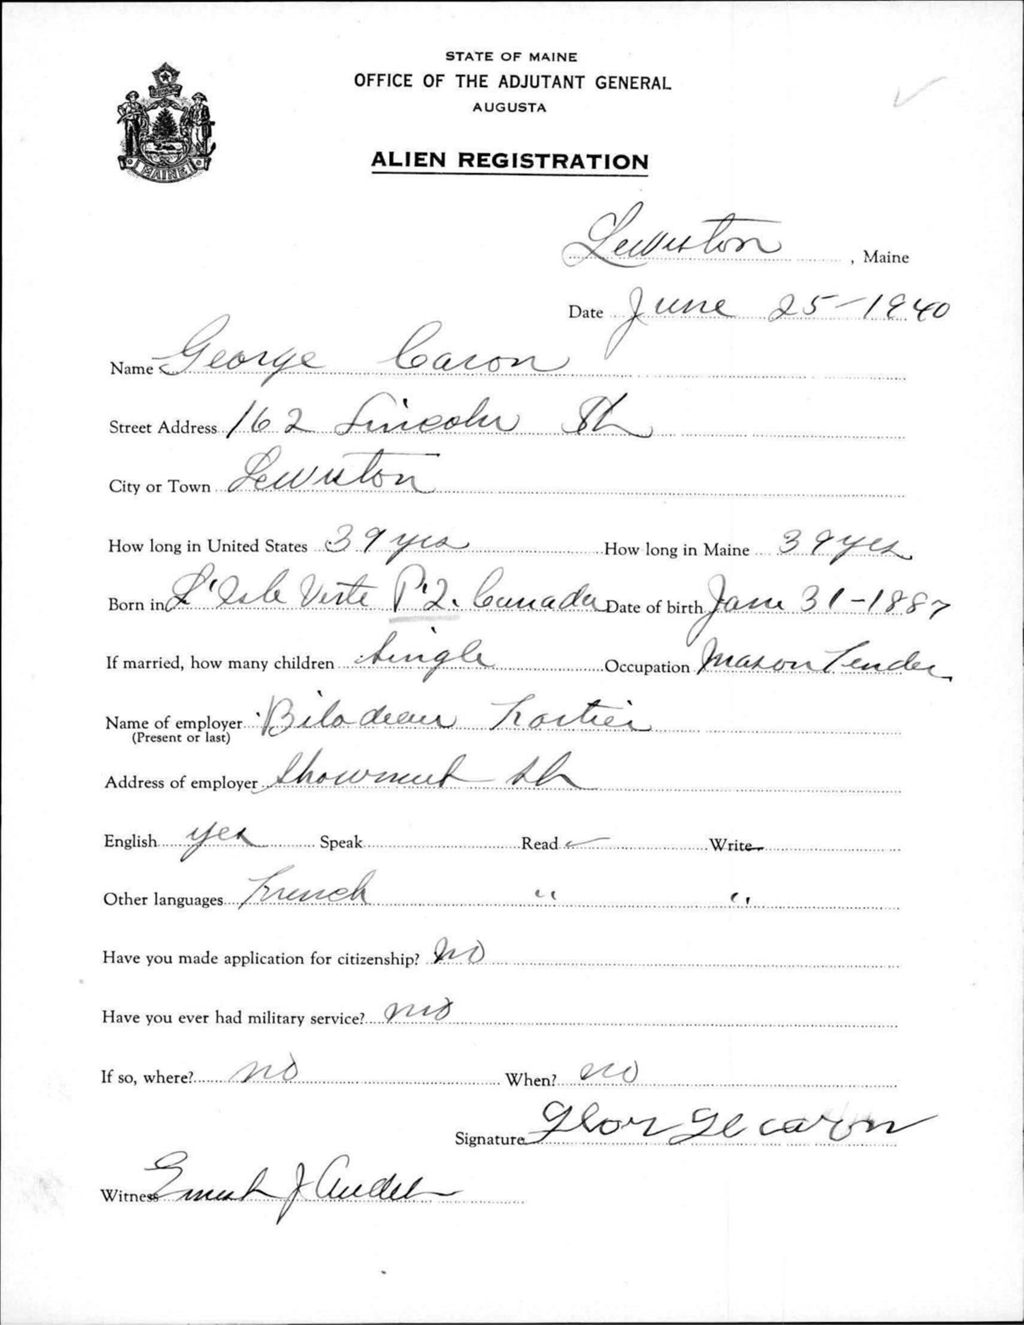 STATE OF MAINE
OFFICE OF THE ADJUTANT GENERAL
AUGUSTA
MAINE
ALIEN REGISTRATION
Lewiston, Maine
Date June 25-1940
Name George Caron
Street Address 162 Lincoln St
City or Town Lewiston
How long in United States 39 yrs How long in Maine 39 yrs
Born in L'Isle Verte P.Q. Canada Date of birth Jan 31-1887
If married, how many children Single Occupation Mason Tender
Name of employer Bilodeau
(Present or last)
Address of employer Showmut St
English yes Speak Read ✓ Write
Other languages French " "
Have you made application for citizenship? no
Have you ever had military service? no
If so, where? no When? no
Signature George Caron
Witness J